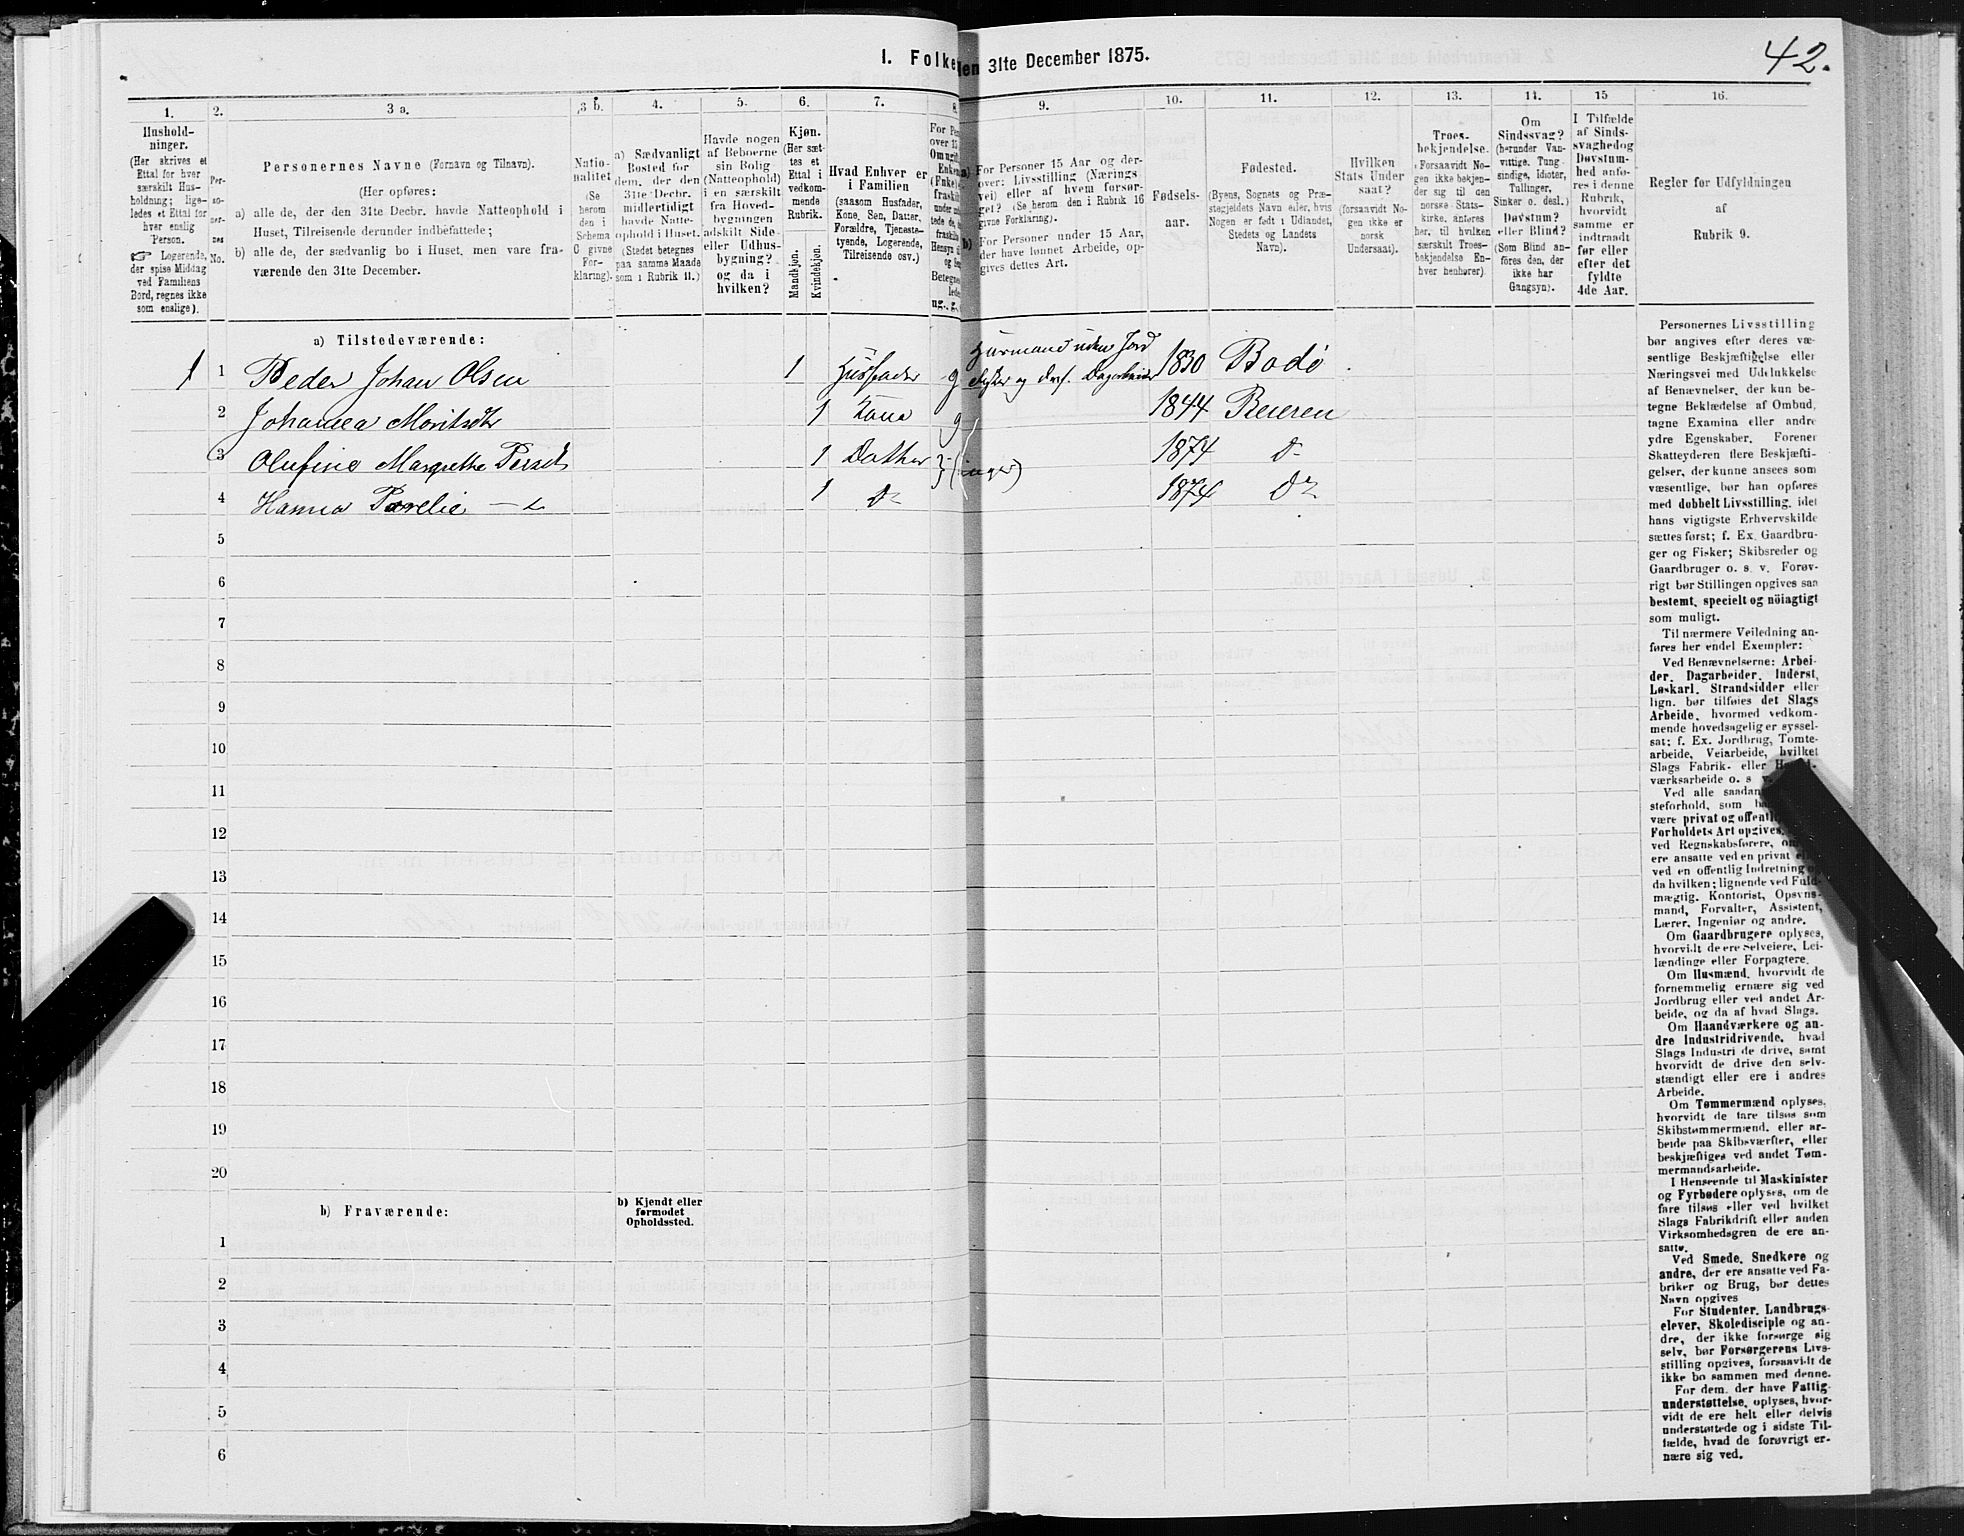 I. Folke
den 31te December 1875.
42.
1.
2.
3 a.
3 b.
4.
5.
6.
7.
8.
9.
10.
11.
12.
13.
14.
15
16.
Hushold-
ninger.
(Her skrives et
Ettal for hver
særskilt Hus-
holdning; lige-
ledes et Ettal for
hver enslig
Person.
☞ Logerende,
der spise Middag
ved Familiens
Bord, regnes ikke
som enslige).
Per-
so-
ner-
nes
No.
Personernes Navne (Fornavn og Tilnavn).
(Her opføres:
a) alle de, der den 31te Decbr. havde Natteophold i
Huset, Tilreisende derunder indbefattede;
b) alle de, der sædvanlig bo i Huset, men vare fra-
værende den 31te December.
Natio-
nalitet
(Se
herom
den i
Schema
O givne
For-
klaring).
a) Sædvanligt
Bosted for
dem, der den
31te Decbr.
midlertidigt
havde Natte-
ophold i Huset.
(Stedet betegnes
paa samme Maade
som i Rubrik 11.)
Havde nogen
af Beboerne
sin Bolig
(Natteophold)
i en særskilt
fra Hoved-
bygningen
adskilt Side-
eller Udhus-
bygning?
og da i
hvilken?
Kjøn.
(Her sæt-
tes et
Ettal i
vedkom-
mende
Rubrik.
Mandkjøn.
Kvindekjøn.
Hvad Enhver er
i Familien
(saasom Husfader,
Kone, Søn, Datter,
Forældre, Tjeneste-
tyende, Logerende,
Tilreisende osv.)
For Per
over 15
Om ugift
Enkem
(Enke)
fraskilt
under
tede de,
fraskilte
Hensyn til
og Sen
Betegnes
lede
ug., g.,
a)
For Personer 15 Aar og der-
over: Livsstilling (Nærings
vei) eller af hvem forsør-
get? (Se herom den i Rubrik 16
givne Forklaring).
b)
For Personer under 15 Aar,
der have lønnet Arbeide, op-
gives dettes Art.
Fødsels-
aar.
Fødested.
(Byens, Sognets og Præ-
stegjeldets Navn eller, hvis
Nogen er født i Udlandet,
Stedets og Landets
Navn).
Hvilken
Stats Under
saat?
(forsaavidt No-
gen ikke er
norsk
Undersaat).
Troes-
bekjendelse.
(Forsaavidt No-
gen ikke bekjen-
der sig til den
norske Stats-
kirke, anføres
her, til hvilken
særskilt Troes-
bekjendelse En-
hver henhører).
Om
Sindssvag?
(herunder Van-
vittige, Tung
sindige, Idioter,
Tullinger,
Sinker o. desl.)
Døvstum?
eller Blind?
(Som Blind an-
føres den, der
ikke har
Gangsyn).
I Tilfælde
af Sinds-
svaghed og
Døvstum-
hed anfø-
res i denne
Rubrik,
hvorvidt
samme er
indtraadt
før eller
efter det
fyldte
4de Aar.
Regler for Udfyldningen
af
Rubrik 9.
a) Tilstedeværende:
1 1 Peder Johan Olsen 1 Husfader g Husmand uden Jord
Fisker og Dagarbeider 1830 Bodø
2 Johanna Moritsdtr 1 Kone g 1844 Beieren
3 Olufine Margrethe Persdtr 1 Datter 1874 do
4 Hanna Parelie — " — 1 do 1874 do
5
6
7
8
9
10
11
12
13
14
15
16
17
18
19
20
b) Fraværende:
b) Kjendt eller
formodet
Opholdssted.
1
2
3
4
5
6
Personernes Livsstilling
bør angives efter deres væ-
sentlige Beskjæftigelse eller
Næringsvei med Udelukkelse
af Benævnelser, der kun be-
tegne Beklædelse af Ombud,
tagne Examina eller andre
ydre Egenskaber. Forener
Skatteyderen flere Beskjæfti-
gelser, der kunne ansees som
væsentlige, bør han opføres
med dobbelt Livsstilling, idet
hans vigtigste Erhvervskilde
sættes først; f. Ex. Gaardbru-
ger og Fisker; Skibsreder og
Gaardbruger o. s. v. Forøv-
rigt bør Stillingen opgives saa
bestemt, specielt og nöiagtigt
som muligt.
Til nærmere Veiledning an-
føres her endel Exempler:
Ved Benævnelserne: Arbei-
der, Dagarbeider, Inderst,
Løskarl, Strandsidder eller
lign. bør tilføies det Slags
Arbeide, hvormed vedkom-
mende hovedsagelig er syssel-
sat; f. Ex. Jordbrug, Tomte-
arbeide, Veiarbeide, hvilket
Slags Fabrik- eller
værksarbeide o. s
Ved alle saadan
steforhold, som
være privat og offentl
Forholdets Art opgives,
ved Regnskabsførere, om
ere ansatte ved en privat
ved en offentlig Indretning
da hvilken; lignende ved Fuld-
mægtig, Kontorist, Opsyns-
mand, Forvalter, Assistent,
Lærer, Ingeniør og andre.
Om Gaardbrugere oplyses,
hvorvidt de ere Selveiere, Lei-
lændinge eller Forpagtere.
Om Husmænd, hvorvidt de
fornemmelig ernære sig ved
Jordbrug eller ved andet Ar-
beide, og da af hvad Slags.
Om Haandværkere og an-
dre Industridrivende, hvad
Slags Industri de drive, samt
hvorvidt de drive den selv-
stændigt eller ere i andres
Arbeide.
Om Tømmermænd oplyses,
hvorvidt de fare tilsøs som
Skibstømmermænd, eller ar-
beide paa Skibsværfter, eller
beskjæftiges ved andet Tøm-
mermandsarbeide.
I Henseende til Maskinister
og Fyrbødere oplyses, om de
fare tilsøs eller ved hvilket
Slags Fabrikdrift eller anden
Virksomhedsgren de ere an-
satte.
Ved Smede, Snedkere og
andre, der ere ansatte ved Fa-
briker og Brug, bør dettes
Navn opgives
For Studenter, Landbrugs-
elever, Skoledisciple og an-
dre, der ikke forsørge sig
selv, bør Forsørgerens Livs-
stilling opgives, forsaavidt de
ikke bo sammen med denne.
For dem, der have Fattig-
understøttelse, oplyses, hvor-
vidt de ere helt eller delvis
understøttede og i sidste Til-
fælde, hvad de forøvrigt er-
nære sig ved.